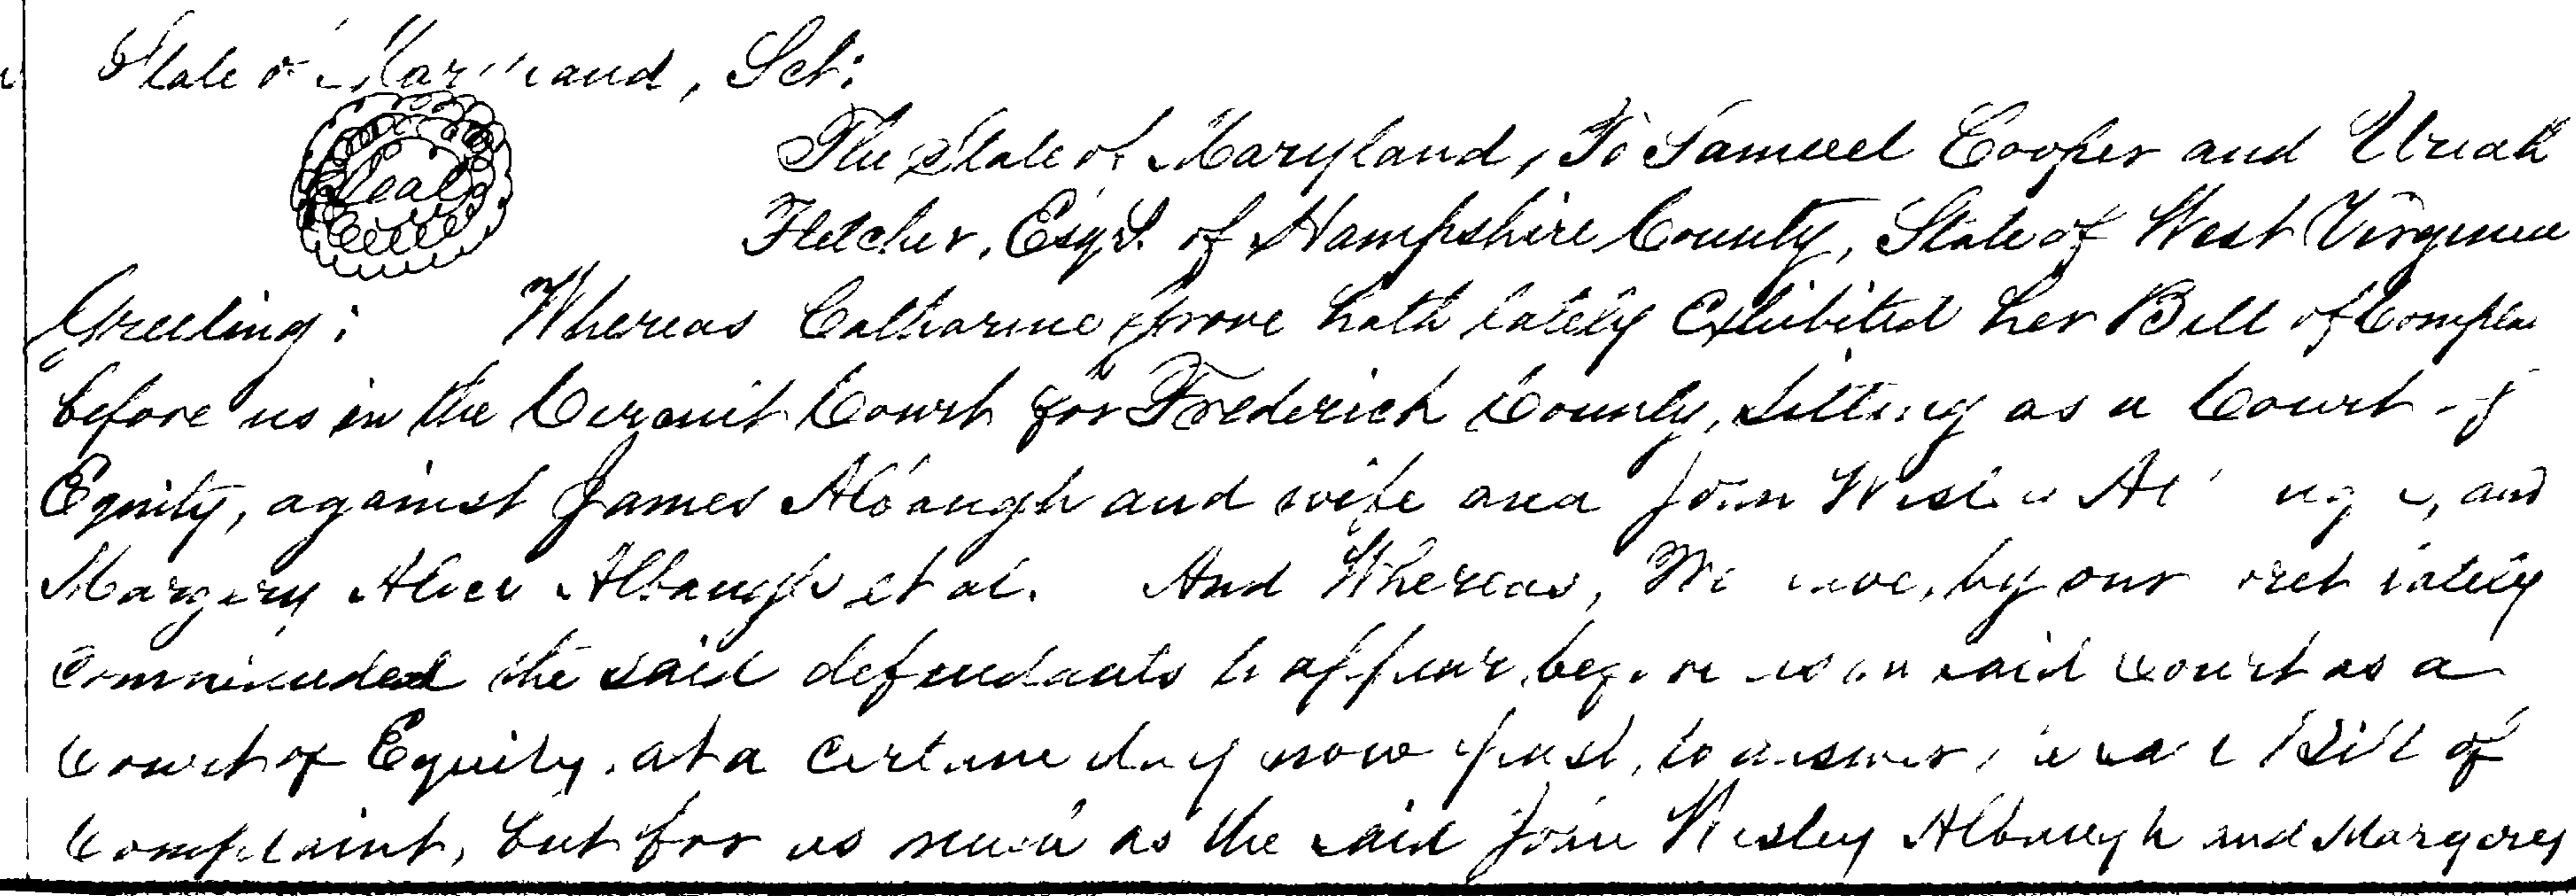 State of Maryland, Sct:
Seal
The State of Maryland, To Samuel Cooper and Uriah
Fletcher, Esqs. of Hampshire County, State of West Virginia
Greeting: Whereas Catharine Grove hath lately Exhibited her Bill of Complai
before us in the Circuit Court for Frederick County, sitting as a Court of
Equity, against James Albaugh and wife and John Wesley Albaugh, and
Margery Alice Albaugh et al. And Whereas, We have, by our writ lately
Commanded the said defendants to appear before us in said Court as a
Court of Equity, at a certain day now past, to answer the said Bill of
Complaint, but for as much as the said John Wesley Albaugh and Margery